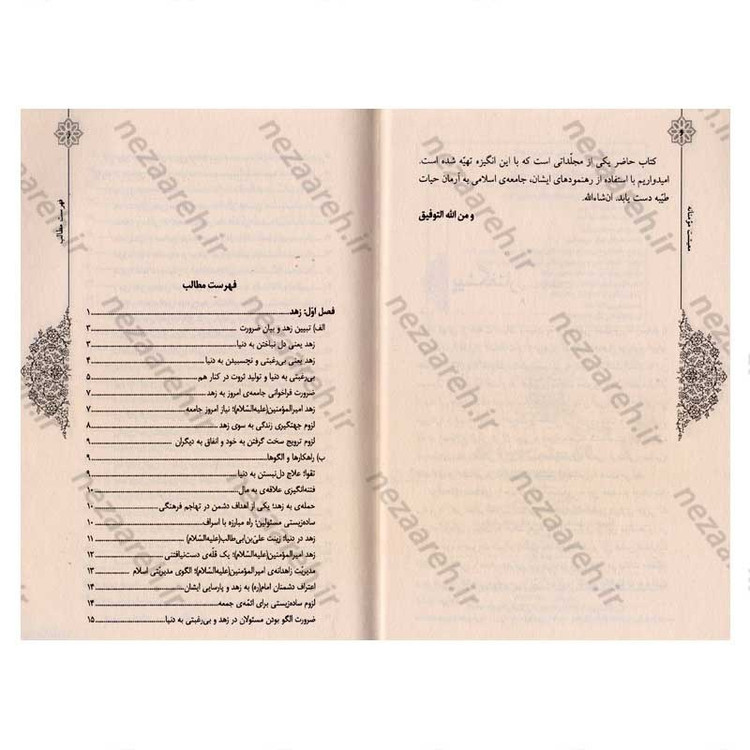 کتاب حاضر یکی از مجلّداتی است که با این انگیزه تهیّه شده است.
امیدواریم با استفاده از رهنمودهای ایشان، جامعه‌ی اسلامی به آرمان حیات
طیّبه دست یابد. ان‌شاءالله.
و من الله التوفیق
معیشت مؤمنانه
فهرست مطالب
فهرست مطالب
فصل اوّل: زهد ۱
الف) تبیین زهد و بیان ضرورت ۳
زهد یعنی دل نباختن به دنیا ۳
زهد یعنی بی‌رغبتی و نچسبیدن به دنیا ۴
بی‌رغبتی به دنیا و تولید ثروت در کنار هم ۵
ضرورت فراخوانی جامعه‌ی امروز به زهد ۷
زهد امیرالمؤمنین(علیه‌السّلام)؛ نیاز امروز جامعه ۷
لزوم جهتگیری زندگی به سوی زهد ۸
لزوم ترویج سخت گرفتن به خود و انفاق به دیگران ۹
ب) راهکارها و الگوها ۹
تقوا؛ علاج دل‌نبستن به دنیا ۹
فتنه‌انگیزی علاقه‌ی به مال ۱۰
حمله‌ی به زهد؛ یکی از اهداف دشمن در تهاجم فرهنگی ۱۰
ساده‌زیستی مسئولین؛ راه مبارزه با اسراف ۱۰
زهد در دنیا؛ زینت علیّ‌بن‌ابی‌طالب(علیه‌السّلام) ۱۱
زهد امیرالمؤمنین(علیه‌السّلام)؛ یک قلّه‌ی دست‌نیافتنی ۱۲
مدیریّت زاهدانه‌ی امیرالمؤمنین(علیه‌السّلام)؛ الگوی مدیریّتی اسلام ۱۳
اعتراف دشمنان امام(ره) به زهد و پارسایی ایشان ۱۴
لزوم ساده‌زیستی برای ائمّه‌ی جمعه ۱۴
ضرورت الگو بودن مسئولان در زهد و بی‌رغبتی به دنیا ۱۵
nezaareh.ir
nezaareh.ir
nezaareh.ir
nezaareh.ir
nezaareh.ir
nezaareh.ir
nezaareh.ir
nezaareh.ir